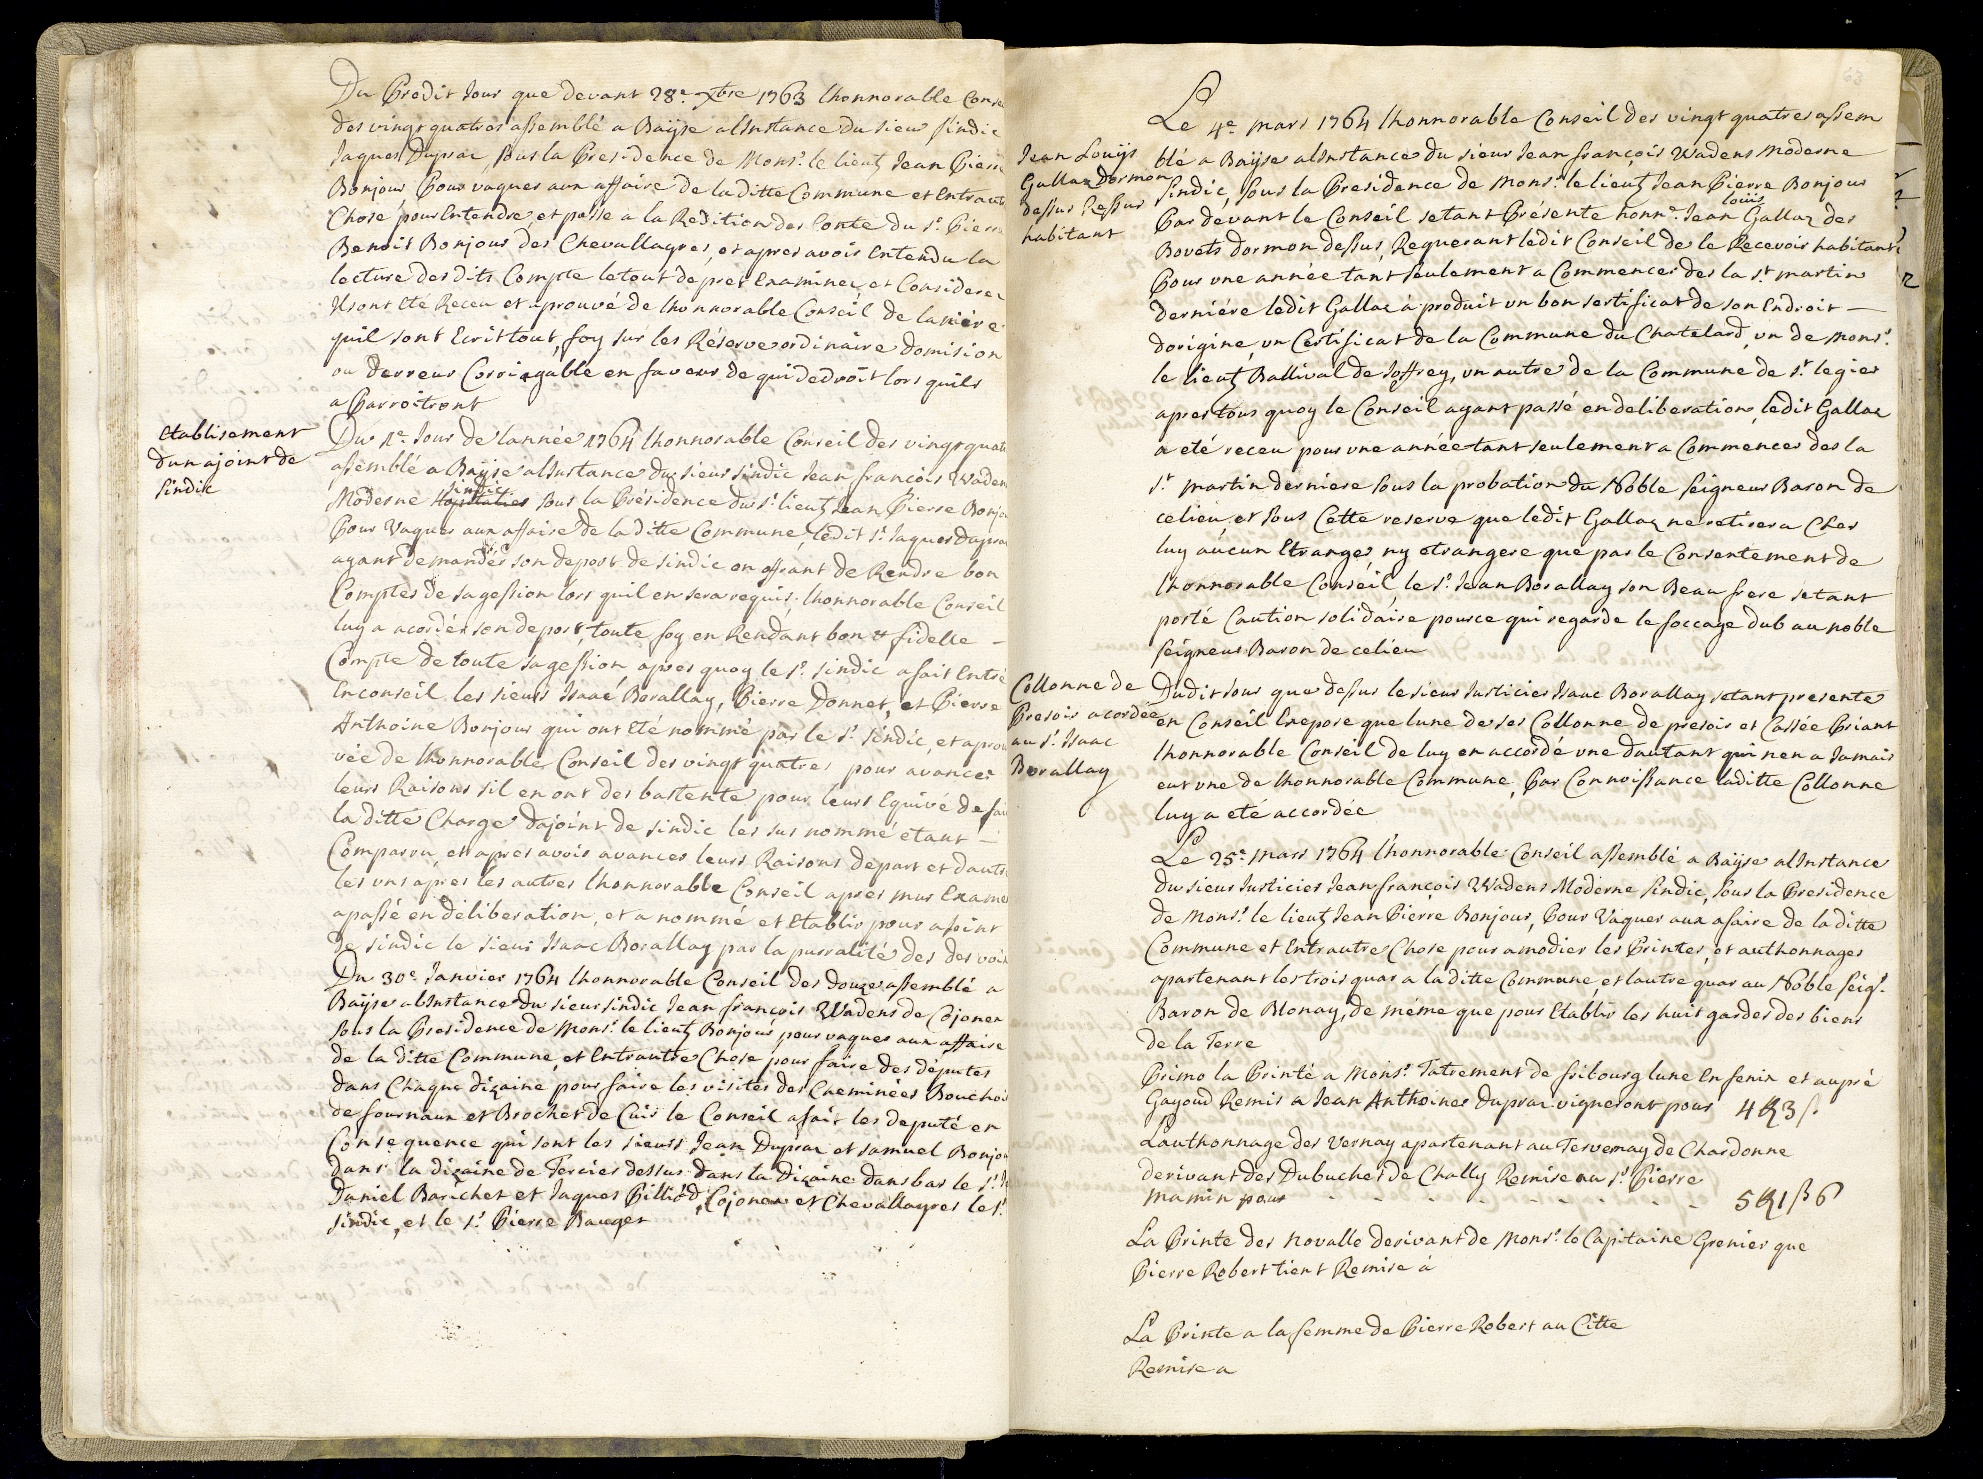 Du Predit Jour que devant 28e. Xbre 1763 lhonnorable Conse
des vingt quatres assemblé a Baÿse alInstance du sieur sindic
Jaques Dupraz, sous la Presidence de Monsr. le lieut Jean Pierre
Bonjour Pour vaquer aux affaire de laditte Commune et Entraut
Chose pour Entendre, et passe a la Redition des Conte du sr. Pierre
Benoit Bonjour des Chevallayres, et apres avoir Entendu la
lecture des dits Compte le tout de pres Examinez et Considerez
Ils ont Eté Receu et aprouvé de lhonnorable Conseil de laniere
quil sont Ecrit tout, foy sur les Réserve ordinaire domision
ou derreur Corrigable en faveur de qui dedroit lors quils
a Parroitront
Etablisement
dun ajoint de
sindic
Du 1e. Jour de lannée 1764 lhonnorable Conseil des vingt quatr
assemblé a Baÿse alInstance du sieur sindic Jean françois Waden
sindic
Moderne Hospitalier sous la Présidence du sr. lieut Jean Pierre Bonjou
Pour Vaquer aux affaire de laditte Commune, ledit sr. Jaques Dupraz
ayant demandér son deport de sindic en offrant de Rendre bon
Comptes de sa gession lors quil en sera requis. lhonnorable Conseil
luy a acordér son deport, toute foy en Rendant bon & fidelle –
Compte de toute sa gession apres quoy le sr. sindic a fait Entré
En conseil les sieurs Isaac Borallay, Pierre Donnet, et Pierre
Anthoine Bonjour qui ont Eté nommé par le sr. sindic, et aprou
vée de lhonnorable Conseil des vingt quatres pour avancer
leurs Raisons sil en ont des bastente pour leurs Equivé de fair
laditte Charge dajoint de sindic les sus nommé étant –
Comparru, et apres avoir avancer leurs Raisons depart et dautre
les uns apres les autres lhonnorable Conseil apres mur Examen
a passé en déliberation, et a nommé et Etablir pour ajoint
de sindic le sieur Isaac Borallay par la purralité des des voix
Du 30e. Janvier 1764 lhonnorable Conseil des douze assemblé a
Baÿse alInstance du sieur sindic Jean françois Wadens de Cojonex
sous la Presidence de Monsr. le lieut Bonjour, pour vaquer aux affaire
de la ditte Commune, et Entrautre Chose pour faire des députes
dans Chaque dizaine, pour faire les visites des Cheminées Bouchoir
de fournaux et Brochet de Cuir le Conseil a fait les deputé en
Consequence qui sont les sieurs Jean Dupraz et samuel Bonjou
dans la dizaine de Tercier dessus dans la Dizaine dans bas le sr. J
Daniel Barichet et Jaques Pilliod, Cojonex et Chevallayres le sr.
sindic, et le sr. Pierre Bauget
Le 4e. mars 1764 lhonnorable Conseil des vingt quatres assem
Jean Louÿs
Gallaz Dormon
dessus Ressus
habitant
blé a Baÿse alInstance du sieur Jean françois Wadens Moderne
sindic, sous la Presidence de Monsr. le lieut Jean Pierre Bonjour
louis
Par devant le Conseil setant Présente honnr. Jean Gallaz des
Bovets dormon dessus, Requerant ledit Conseil de le Recevoir habitant
Pour une année tant seulement a Commencer des la st. martin
derniére ledit Gallaz à produit un bon sertificat de son Endroit –
dorigine, un Certificat de la Commune du Chatelard, un de Monsr.
le lieut Ballival de Joffrey, un autre de la Commune de st. legier
apres tous quoy le Conseil ayant passé en deliberation, ledit Gallaz
a eté receu pour une année tant seulement a Commencer des la
st. martin derniere sous la probation du Noble seigneur Baron de
celieu et sous Cette reserve que ledit Gallaz ne retirera Cher
luy aúcun Etranger, ny etrangere que par le Consentement de
lhonnorable Conseil, le sr. Jean Borallay son Beau frere setant
porté Caution solidaire pour ce qui regarde le foccage dub au noble
seigneur Baron de celieu
Collonne de
Presoir acordée
au sr. Isaac
Borallay
Dudit Jour que dessus le sieur Justicier Isaac Borallay setant presente
en Conseil Exepose que lune de ses Collonne de presoir et Cassée Priant
lhonnorable Conseil de luy en accordé une dautant qui nen a Jamais
eut une de lhonnorable Commune, Par Connoissance laditte Collonne
luy a eté accordée
Le 25e. mars 1764 lhonnorable Conseil assemblé a Baÿse alInstance
du sieur Justicier Jean françois Wadens Moderne sindic, sous la Presidence
de Monsr. le lieut Jean Pierre Bonjour, Pour Vaquer aux afaire de laditte
Commune et Entrautre Chose pour amodier les Printes, et authonnages
apartenant les trois quar a laditte Commune, et lautre quar au Noble seigr.
Baron de Blonay, de méme que pour Etablir les huit gardes des biens
de la Terre
Primo la Printé a Monsr. Tatrement de fribourg lune En fenix et aupré
Gayoud Remis a Jean Anthoines Dupraz vigneront pour 4 R 3 ß.
Lauthonnage des Vernay apartenant au Tervernay de Chardonne
derivant des Dubuchet de Chally Remise au sr. Pierre
Mamin pour - - - - - - - 5 R 1 ß 6
La Printe des Novalle derivant de Monsr. le Capitaine Grenier que
Pierre Robert tient Remise à
La Printe a la femme de Pierre Robert au Citte
Remise a